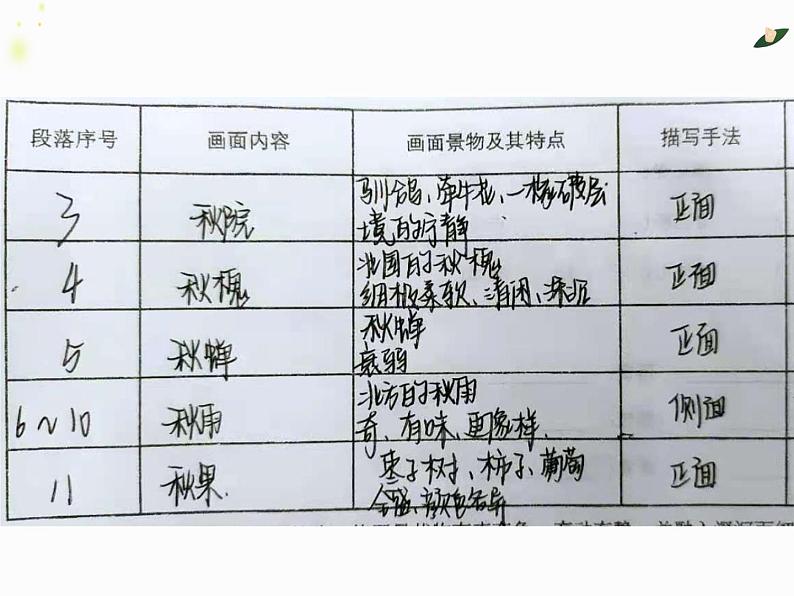 段落序号 画面内容 画面景物及其特点 描写手法
3 秋院 驯鸽、牵牛花、一椽破屋
境的宁静 正面
4 秋槐 北国的秋槐
细极柔软、清闲、深沉 正面
5 秋蝉 秋蝉
衰弱 正面
6~10 秋雨 北方的秋雨
奇、有味、更象样. 侧面
11 秋果. 枣子树、柿子、葡萄
颜色各异 正面